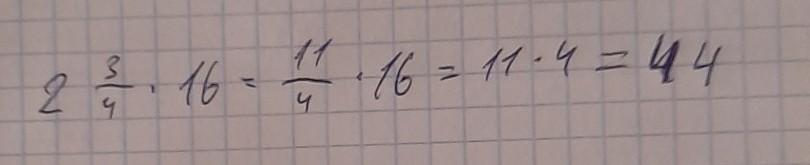 2 3/4 · 16 = 11/4 · 16 = 11 · 4 = 44